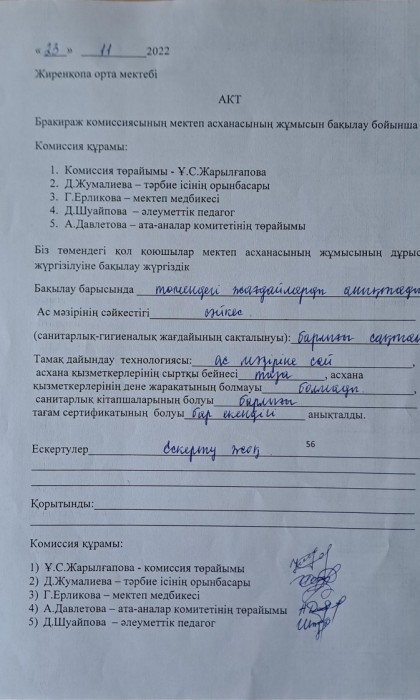 « 23 » 11 2022
Жиренқопа орта мектебі
АКТ
Бракираж комиссиясының мектеп асханасының жұмысын бақылау бойынша
Комиссия құрамы:
1. Комиссия төрайымы - Ұ.С.Жарылғапова
2. Д.Жумалиева – тәрбие ісінің орынбасары
3. Г.Ерликова – мектеп медбикесі
4. Д.Шуайпова – әлеуметтік педагог
5. А.Давлетова – ата-аналар комитетінің төрайымы
Біз төмендегі қол қоюшылар мектеп асханасының жұмысының дұрыс
жүргізілуіне бақылау жүргіздік
Бақылау барысында төмендегі жағдайларды анықтады
Ас мәзірінің сәйкестігі сәйкес.
(санитарлық-гигиеналық жағдайының сақталуны): барлығы сақтал
Тамақ дайындау технологиясы: ас мәзіріне сай,
асхана қызметкерлерінің сыртқы бейнесі таза, асхана
қызметкерлерінің дене жарақатының болмауы болмады,
санитарлық кітапшаларының болуы барлығы
тағам сертификатының болуы бар екендігі анықталды.
Ескертулер Ескерту жоқ 56
Қорытынды:
Комиссия құрамы:
1) Ұ.С.Жарылғапова - комиссия төрайымы
2) Д.Жумалиева – тәрбие ісінің орынбасары
3) Г.Ерликова – мектеп медбикесі
4) А.Давлетова – ата-аналар комитетінің төрайымы
5) Д.Шуайпова – әлеуметтік педагог